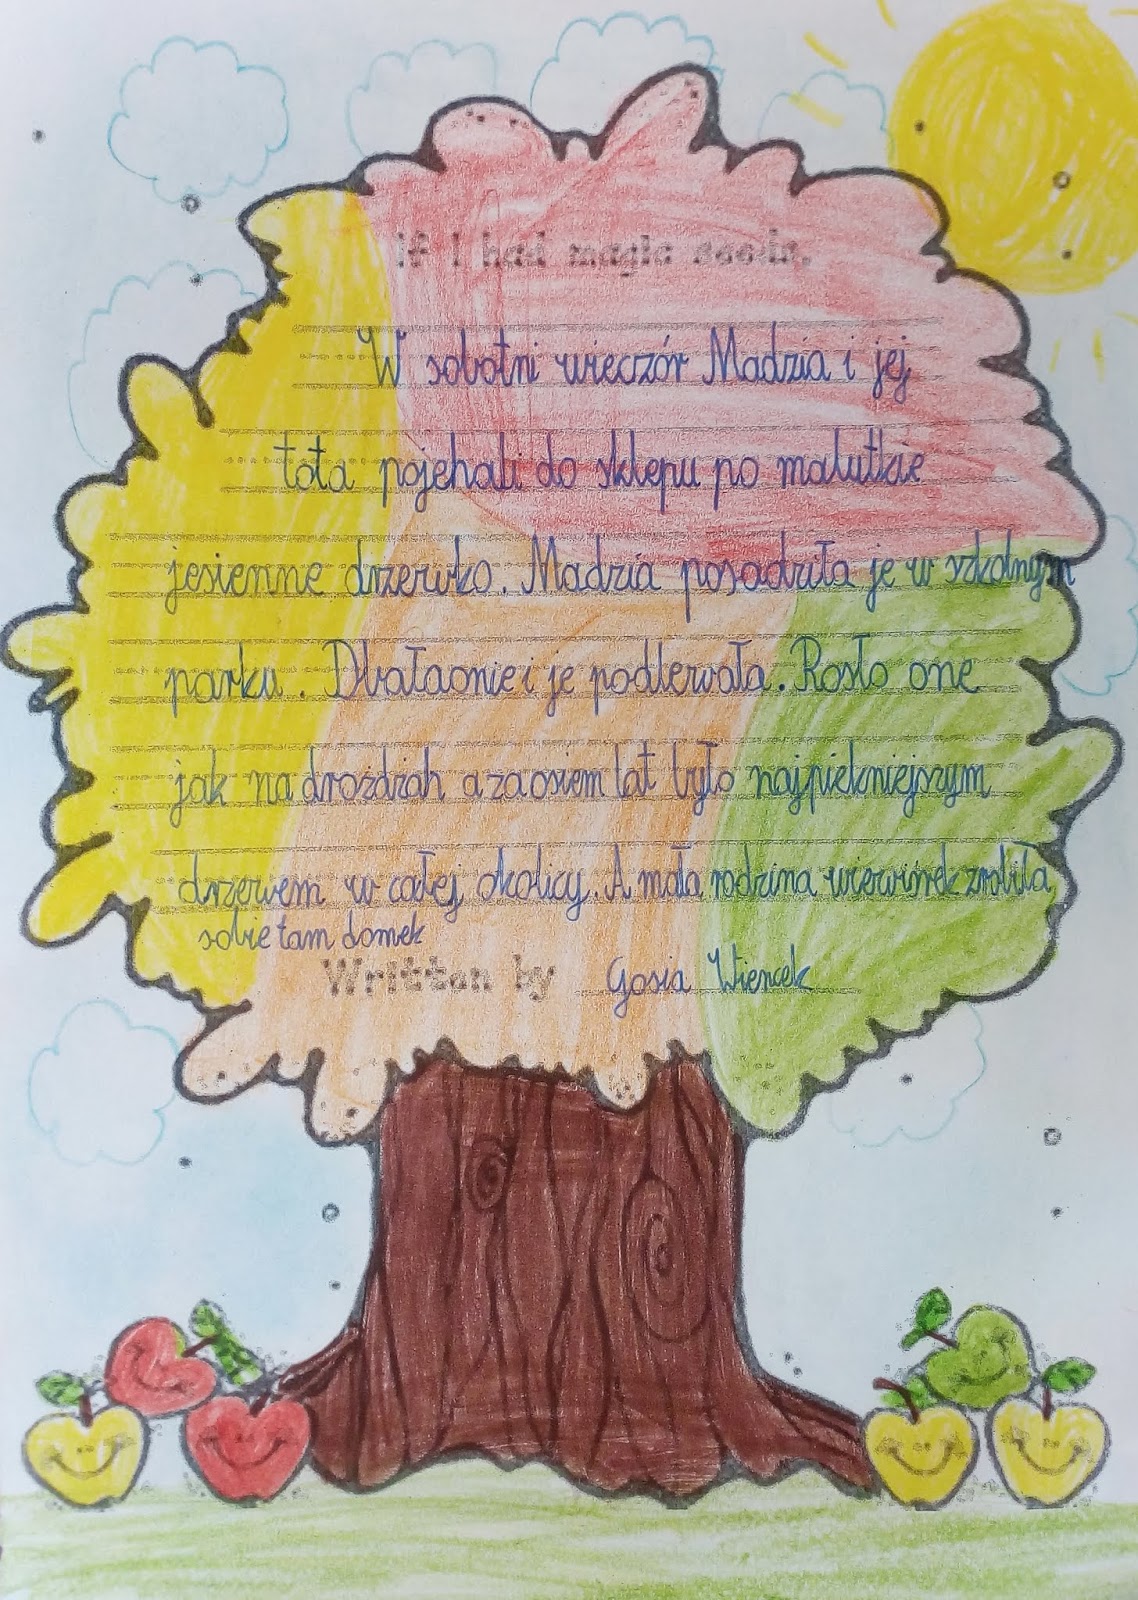 If I had magic seeds,
W sobotni wieczór Madzia i jej
tata pojehali do sklepu po malutkie
jesienne drzewko. Madzia posadziła je w szkolnym
parku. Dbała o nie i je podlewała. Rosło one
jak na drożdżah a za osiem lat było najpiękniejszym
drzewem w całej okolicy. A mała rodzina wiewiórek zrobiła
sobie tam domek
Written by Gosia Wiencek